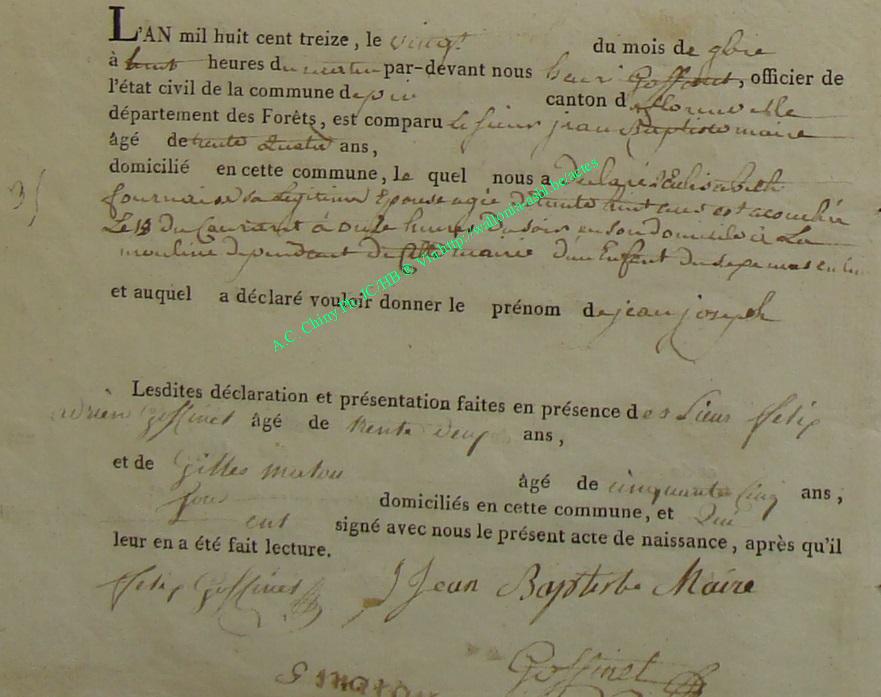 L'AN mil huit cent treize, le vingt du mois de 9bre
à huit heures du matin par-devant nous henri Goffinet, officier de
l'état civil de la commune de pin canton d florenville
département des Forêts, est comparu Le sieur jean Baptiste maire
âgé de trente Quatre ans,
domicilié en cette commune, le quel nous a Declaré Elisabeth
sa Legitime Epouse agée De trente huit ans est acouchée
Le 18 Du Courant à onze heures Du soir en son domicile à La
mouline dependant De mairie d'un Enfant Du sexe masculin
et auquel a déclaré vouloir donner le prénom de jean joseph
Lesdites déclaration et présentation faites en présence des Sieur felix
adrien Goffinet âgé de trente deux ans,
et de Gilles âgé de cinquante cinq ans,
tous domiciliés en cette commune, et Qui
ont signé avec nous le présent acte de naissance, après qu'il
leur en a été fait lecture.
felix Goffinet J Jean Baptiste Maire
Goffinet
A.C. Chiny Ph. JC/HB © Via http://wallonia-asbl.be/actes